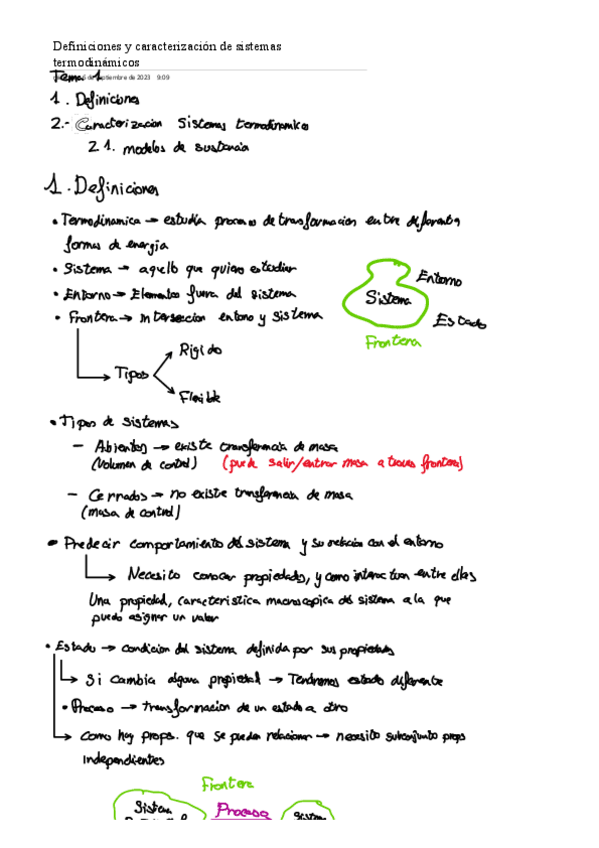 Definiciones y caracterización de sistemas
termodinámicos
Tema 1 de septiembre de 2023 9:09
1. Definiciones
2.- Caracterizacion Sistemas termodinamicos
2.1. modelos de sustancia
1. Definiciones
• Termodinamica → estudia procesos de transformacion entre diferentes
formas de energia
• Sistema → aquello que quiero estudiar
• Entorno → Elementos fuera del sistema
• Frontera → Interseccion entorno y sistema
Entorno
Sistema
Estado
Frontera
Tipos
Rigido
Flexible
• Tipos de sistemas
- Abiertos → existe transferencia de masa
(Volumen de control) (puede salir/entrar masa a traves frontera)
- Cerrados → no existe transferencia de masa
(masa de control)
• Predecir comportamiento del sistema y su relacion con el entorno
Necesito conocer propiedades, y como interactuan entre ellas
Una propiedad, caracteristica macroscopica del sistema a la que
puedo asignar un valor
• Estado → condicion del sistema definida por sus propiedades
Si cambia alguna propiedad → Tendremos estado diferente
• Proceso → transformacion de un estado a otro
como hay props. que se pueden relacionar → necesito subconjunto props
independientes
Frontera
Sistema Proceso Sistema